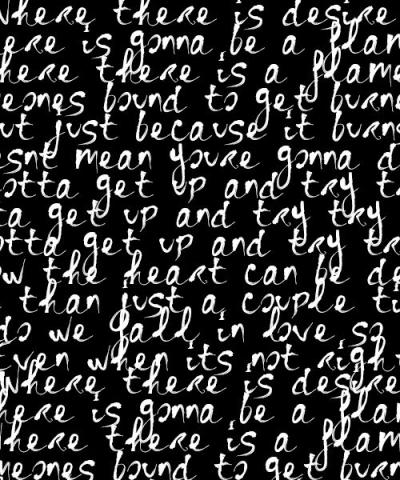 where there is desire
ere is gonna be a flam
here there is a flame
eones bound to get burne
ut just because it burns
snt mean youre gonna d
otta get up and try t
ta get up and try try
otta get up and try tr
w the heart can be de
than just a couple ti
do we fall in love so
ven when its not righ
where there is desire
ere is gonna be a flam
here there is a flam
meones bound to get burn